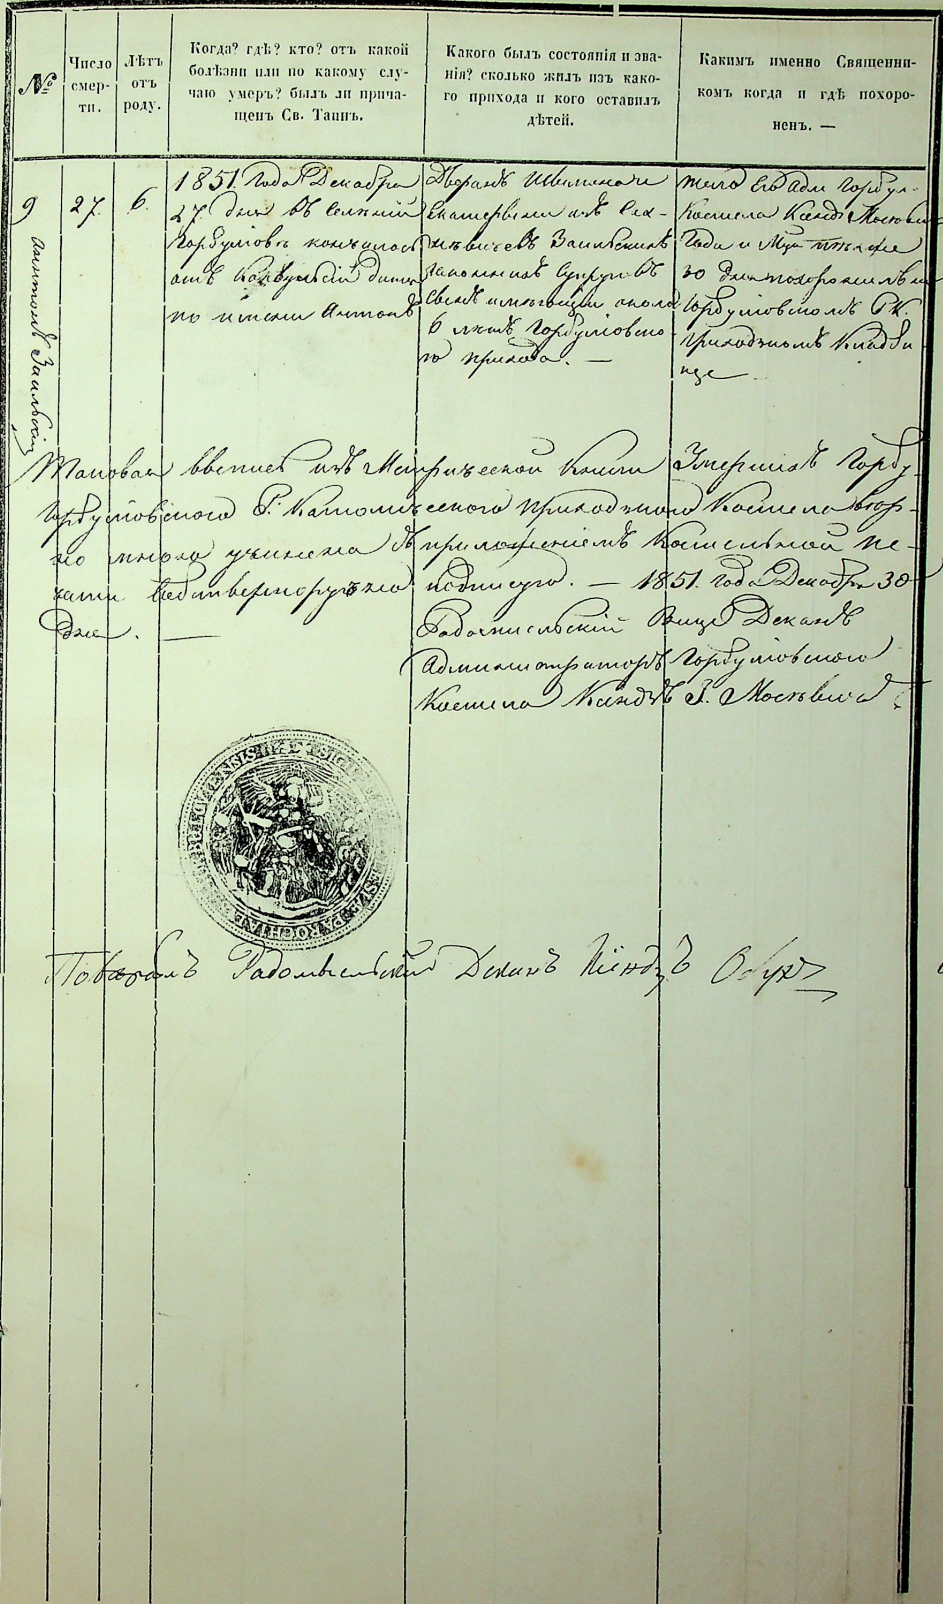 №
Число смер-
ти.
Лѣтъ
отъ
роду.
Когда? гдѣ? кто? отъ какой
болѣзни или по какому слу-
чаю умеръ? былъ ли прича-
щенъ Св. Таинъ.
Какого былъ состоянія и зва-
нія? сколько жилъ изъ како-
го прихода и кого оставилъ
дѣтей.
Какимъ именно Священни-
комъ когда и гдѣ похоро-
ненъ. —
9
Антонъ Заильскій
27.
6.
1851. Года Декабря
27 дня въ селеніи
Горбулювъ кончилось
отъ Конвульсій дитя
по имени Антонъ
Дворянъ
Екатерины изъ
Заильскихъ
законныхъ супруговъ
сынъ имѣющій около
6 лѣтъ Горбулювска-
го прихода. —
тело Его Адм. Горбул.
Костела Ксендзъ
Года и М-ца
30 дня похоронилъ на
Горбулювскомъ Р.К.
приходскомъ Кладби-
ще
Таковая выпись изъ Метрической Книги Умершихъ Горбу-
Горбулювского Р. Католическаго приходскаго Костела вѣр-
но мною учинена съ приложеніемъ Костельной пе-
чати собственноручно подписую. — 1851. года Декабря 30
дня. —
Радомысльскій Вице Деканъ
Администраторъ Горбулювского
Костела Ксендзъ
PAROCHIAE
Радомысльскій Деканъ Ксендзъ